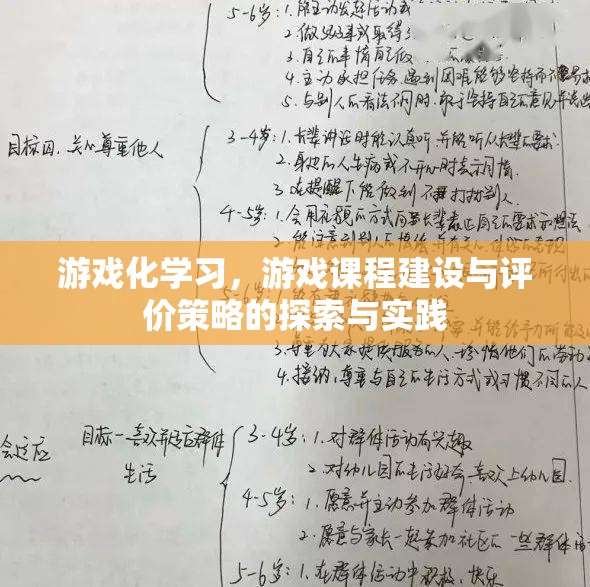 5-6岁：1.能主动发起活动或
2.做了好事或取得了
3.自己的事情自己做
4.主动承担任务，遇到困难能够坚持而不
5.与别人的看法不同时，敢于坚持自己的意见并说出
目标四、关心尊重他人
3-4岁：1.长辈讲话时能认真听，并能听从长辈的要求
2.身边的人生病或不开心时表示同情
3.在提醒下能做到不打扰别人
4-5岁：1.会用礼貌的方式向长辈表达自己的要求和想法
2.能注意到别人的情绪，并有关心、体贴的表现
游戏化学习，游戏课程建设与评
价策略的探索与实践
4.接纳、尊重与自己的生活方式或习惯不同的人
会适应
目标一 喜欢并适应群体
生活
3-4岁：1.对群体活动有兴趣
2.对幼儿园的生活好奇，喜欢上幼儿园.
4-5岁：1.愿意并主动参加群体活动
2.愿意与家长一起参加社区的一些群体活
5-6岁：1.在群体活动中积极、快乐